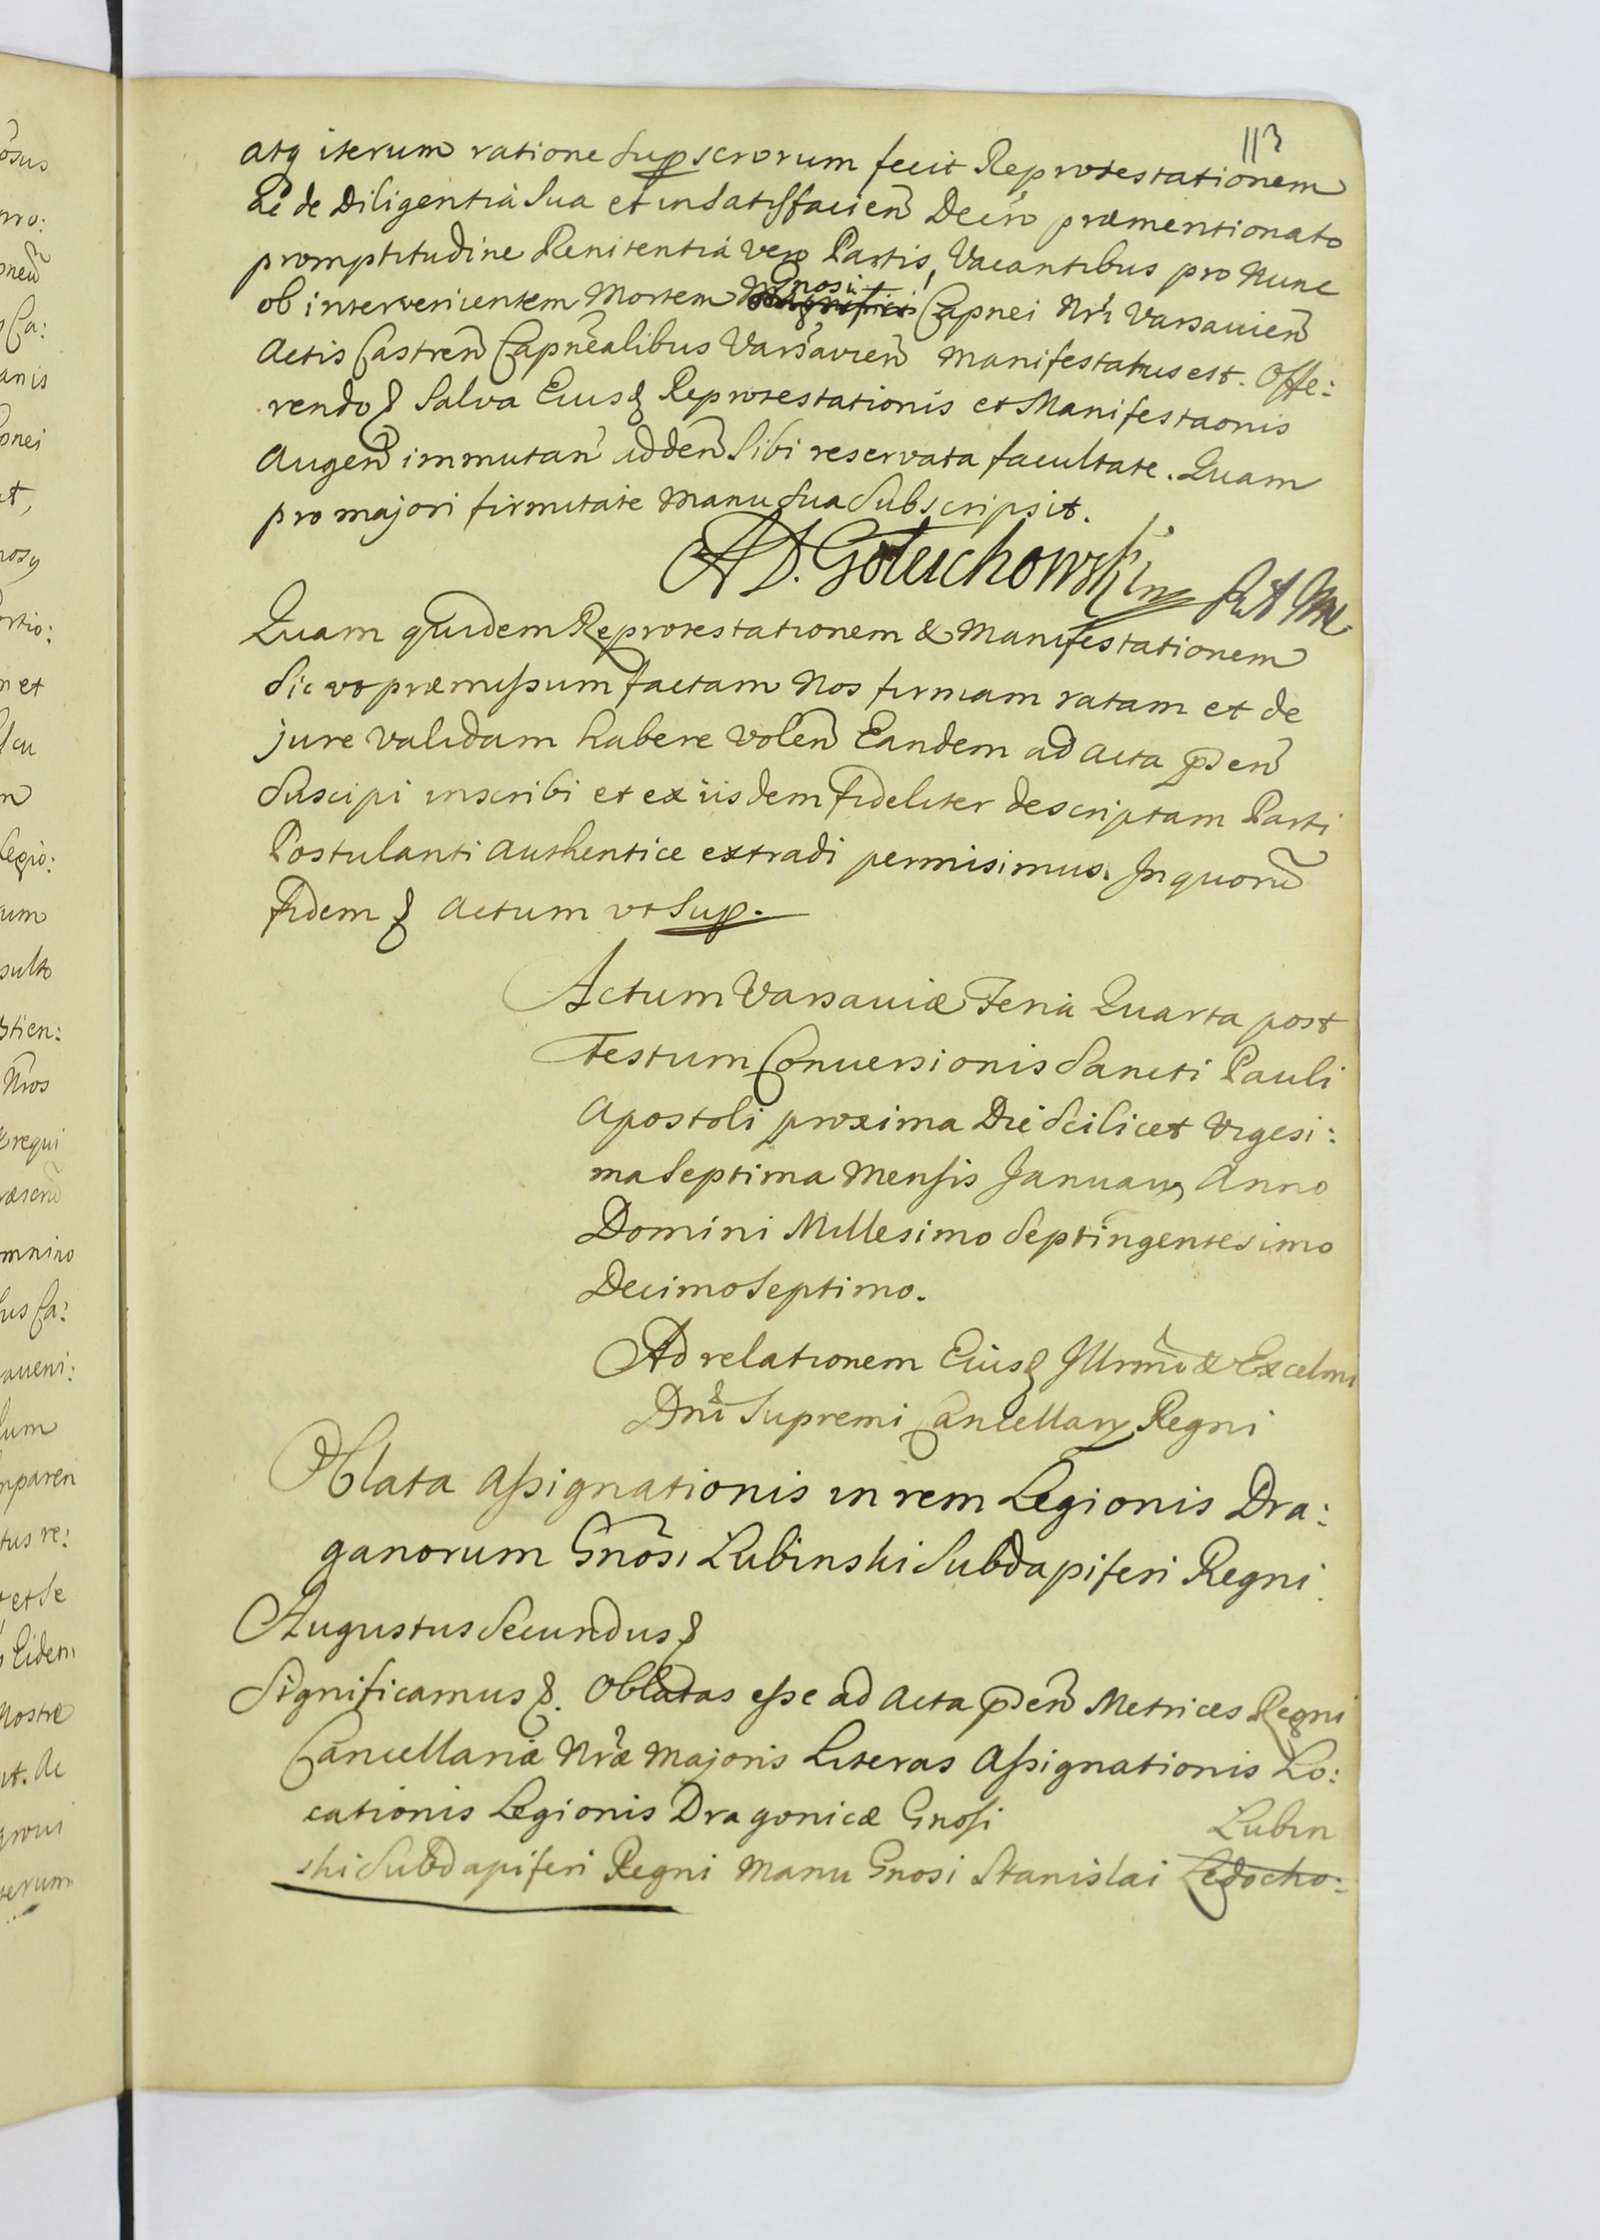 113
atq iterum ratione Sup scrorum fecit Reprotestationem
ac de Diligentia Sua et in Satisfacien Decro præmentionato
promptitudine Renitentia vero Partis, Vacantibus pro Nunc
ob intervenientem Mortem Gnosi Magnifici Capnei Nri Varsavien
Actis Castren Capnealibus Varsavien Manifestatus est. Offe:
rendo & Salva Eius& Reprotestationis et Manifestaonis
Augen immutan adden Sibi reservata facultate. Quam
pro majori firmitate Manu Sua Subscripsit.
AD. Gołuchowski
Quam quidem Reprotestationem & Manifestationem
Sic vt præmissum factam Nos firmam ratam et de
jure validam habere volen Eandem ad Acta pden
Suscipi inscribi et ex iisdem fideliter descriptam Parti
Postulanti Authentice extradi permisimus. In quorũ
fidem & Actum vt Sup.
Actum Varsaviæ Feria Quarta post
Festum Conuersionis Sancti Pauli
Apostoli proxima Die Scilicet Vigesi:
ma Septima Mensis Januarij Anno
Domini Millesimo Septingentesimo
Decimo Septimo.
Ad relationem Eius& Illrmi & Excelmi
Dni Supremi Cancellarij Regni
Oblata Assignationis in rem Legionis Dra:
ganorum Gnosi Lubinski Subdapiferi Regni
Augustus Secundus &
Significamus &. Oblatas esse ad Acta pden Metrices Regni
Cancellariæ Nræ Majoris Literas Assignationis Lo:
cationis Legionis Dragonicæ Gnosi Lubin
ski Subdapiferi Regni Manu Gnosi Stanislai Ledocho: